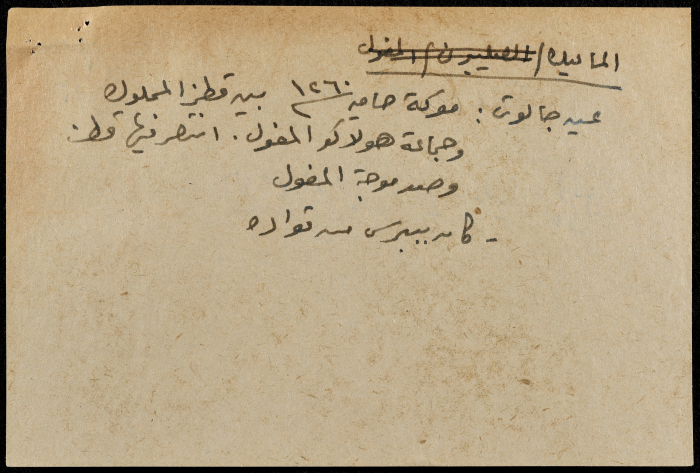 المماليك/ الصليبيون/ المغول
عين جالوت: معركة حامية ١٢٦٠م بين قطز المملوك
وجماعة هولاكو المغول. انتصر فيها قطز
وصد موجة المغول
- كان بيبرس من قواده